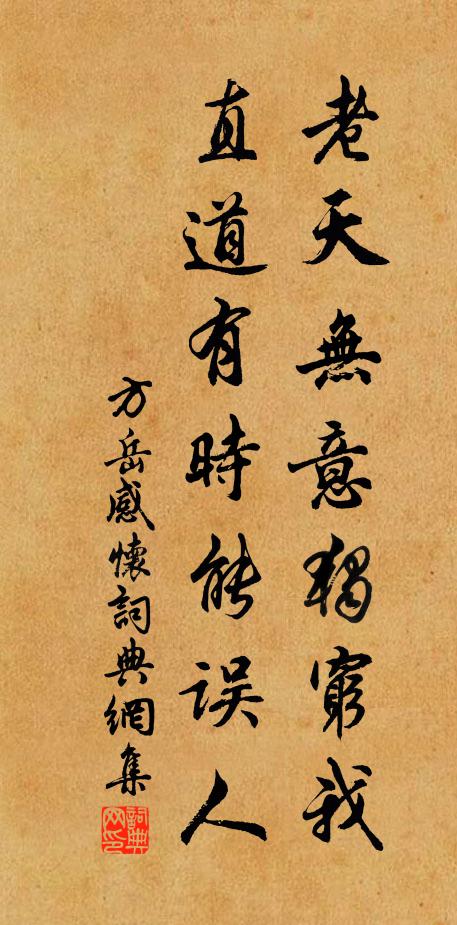 老天無意獨窮我
直道有時能误人
方岳感懷詞典網集
詞典网印